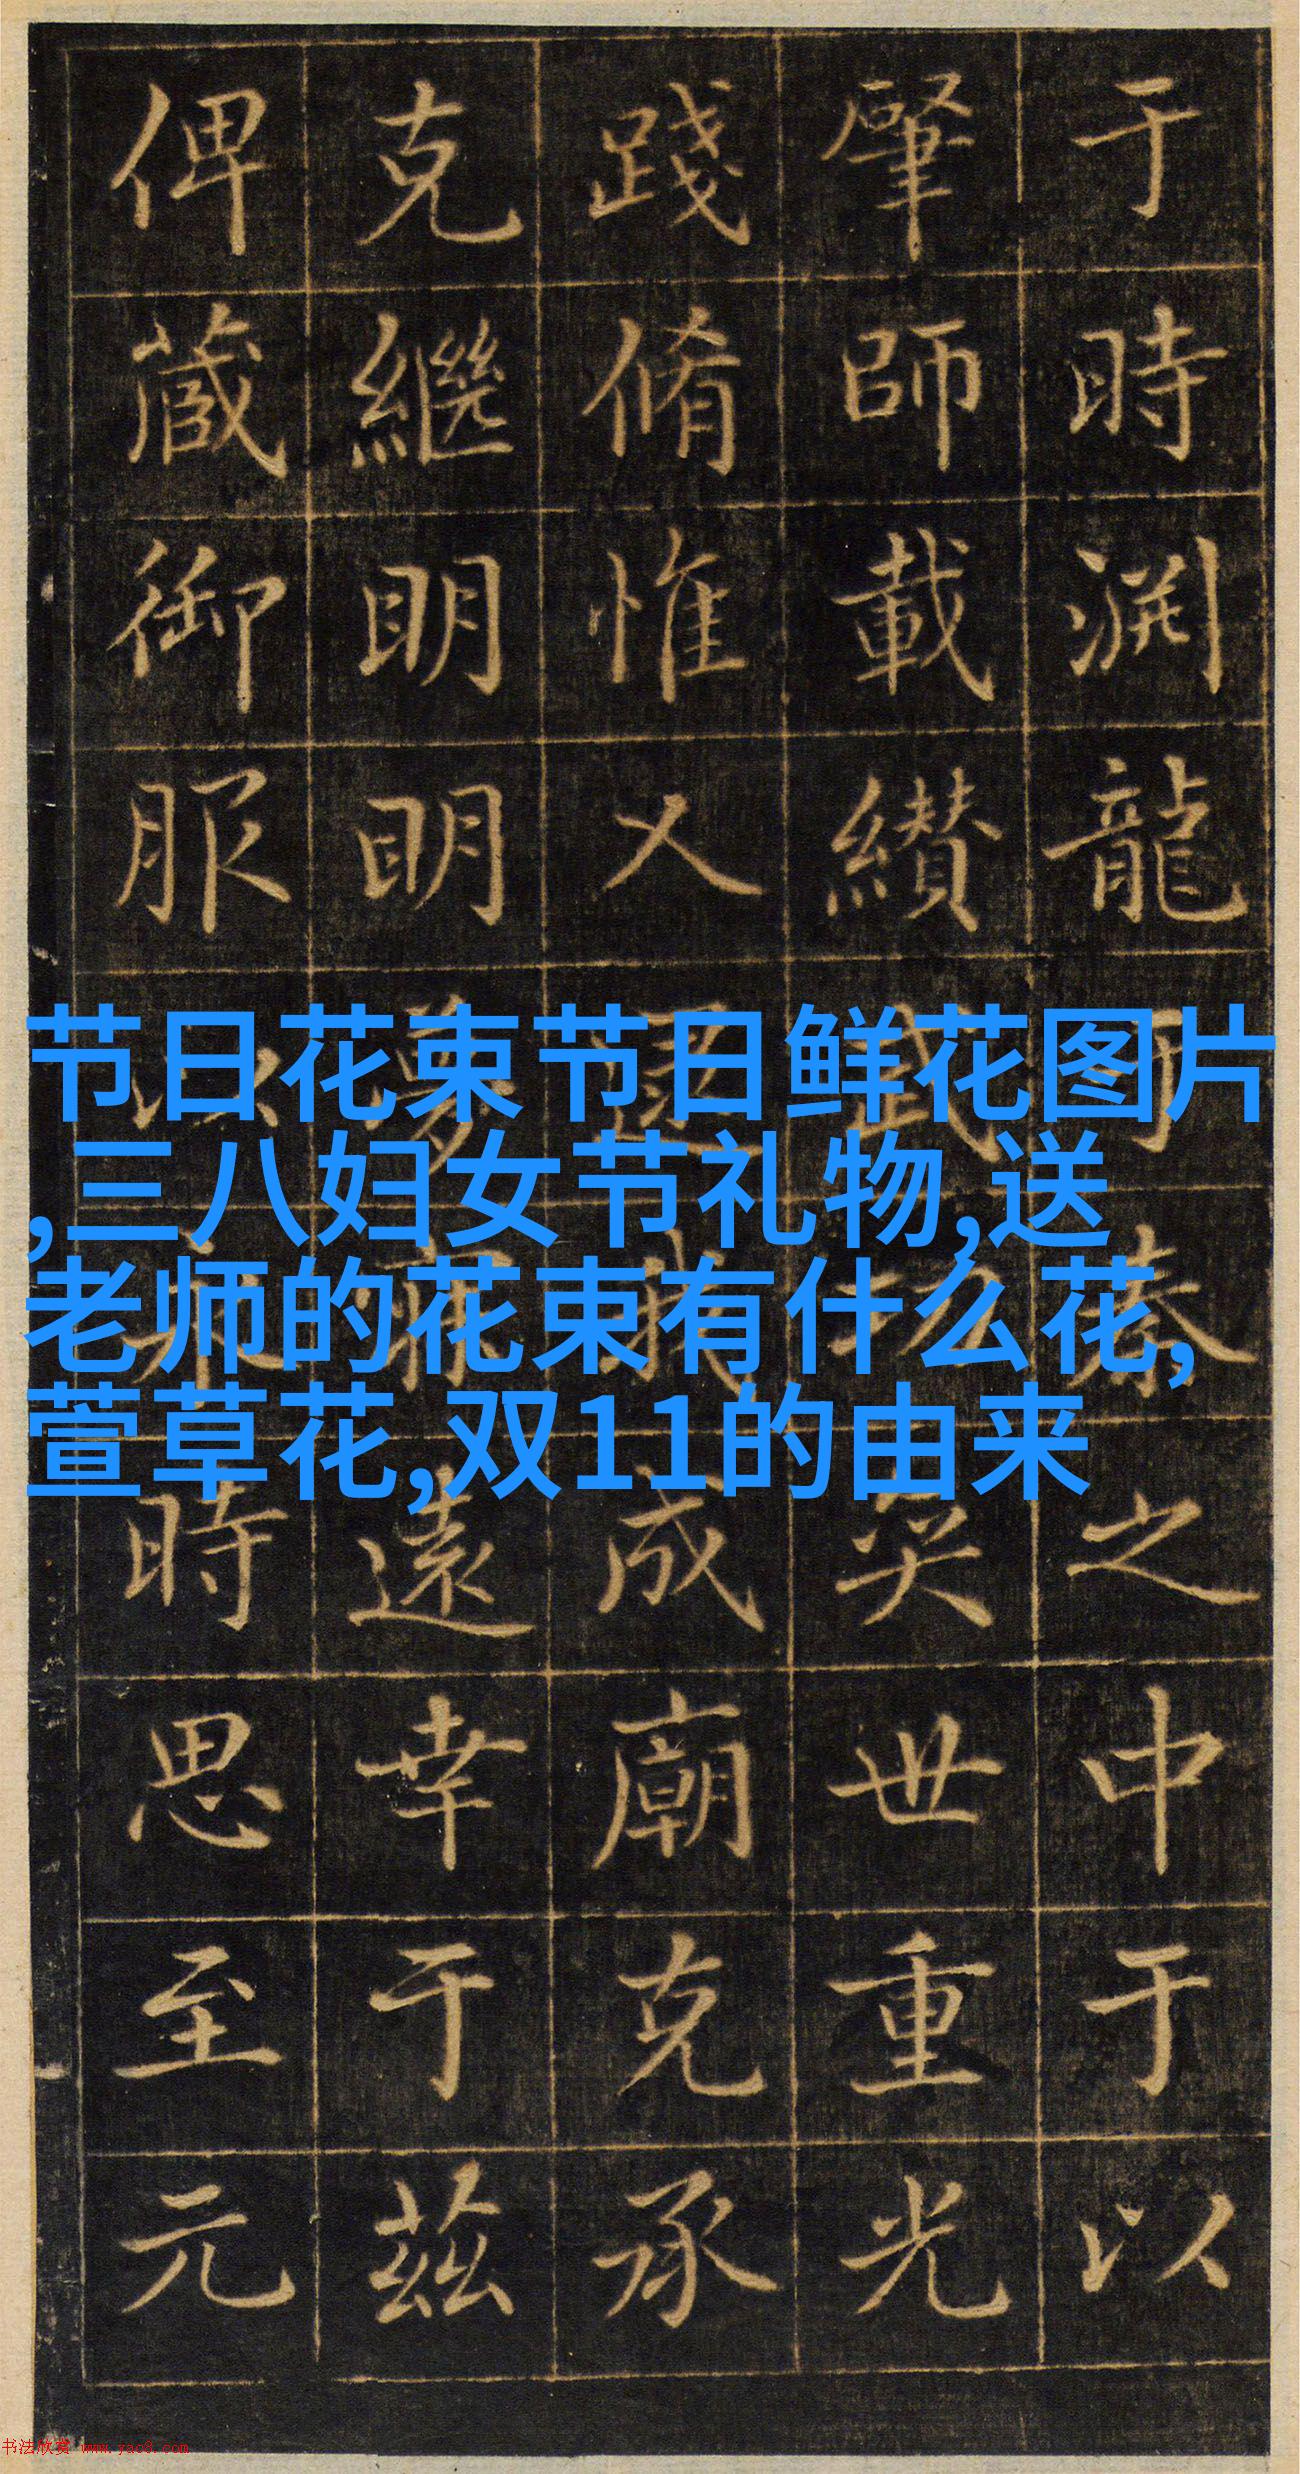 于時淵龍之中于以
肇師載纘武功英世重光
踐脩惟乂成廟克承
克繼明明遠幸于茲
俾蕆御服時思至元
节日花束节日鲜花图片
,三八妇女节礼物,送
老师的花束有什么花,
萱草花,双11的由来
书法欣赏 www.yac8.com